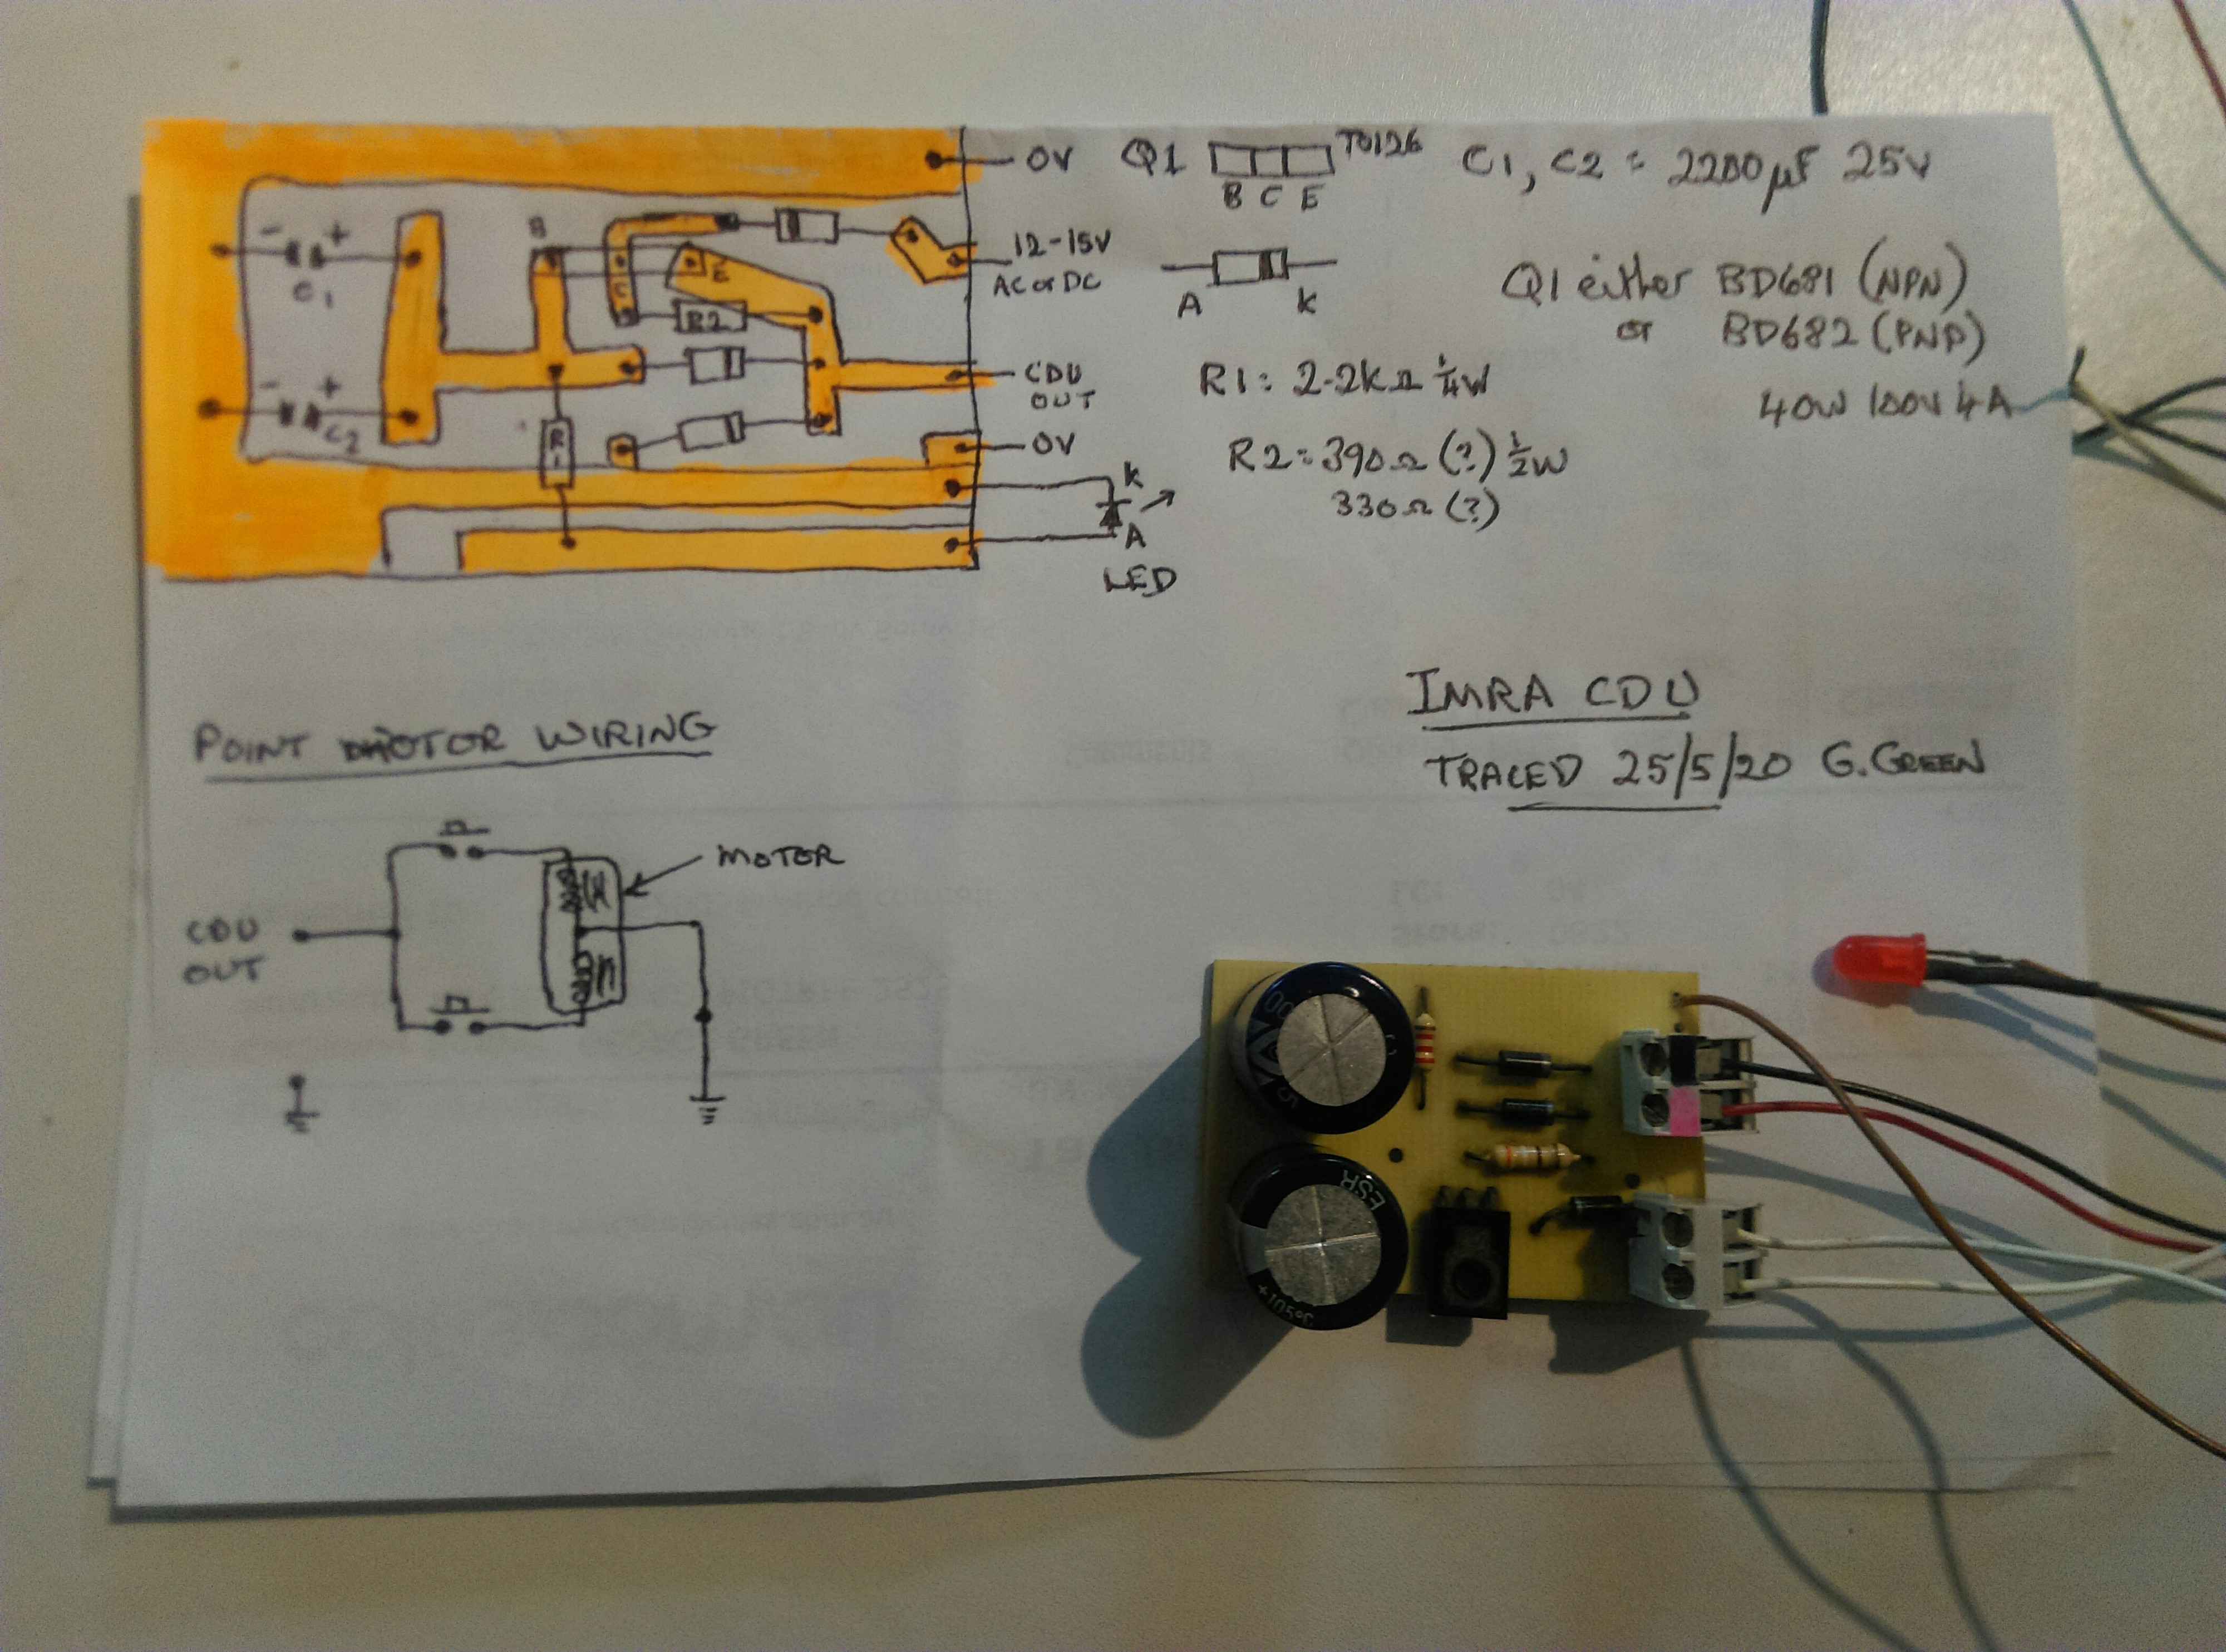 0V
Q1
TO126
C1, C2 = 2200µF 25V
B C E
- +
C1
B
C
E
12-15V
AC or DC
A K
Q1 either BD681 (NPN)
or BD682 (PNP)
R2
CDU
OUT
R1: 2.2kΩ ¼W
40W 100V 4A
- +
C2
R1
0V
R2=390Ω (?) ½W
330Ω (?)
K
A
LED
IMRA CDU
TRACED 25/5/20 G.GREEN
POINT MOTOR WIRING
MOTOR
CDU
OUT
ESR